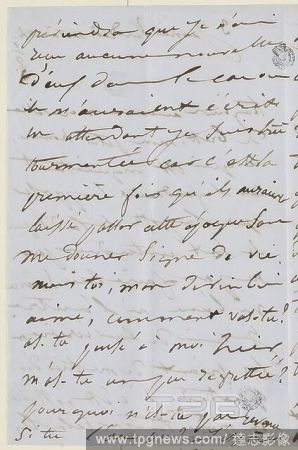 que je n'ai
aucune nouvelle
d'eux dans le cas où
ils m'auraient écrit
en attendant je suis très
tourmentée car c'est la
première fois qu'ils auraient
laissé passer cette époque sans
me donner signe de vie
mais toi, mon bien
aimé, comment vas-tu?
as-tu pensé à moi hier
m'as-tu un peu regrettée?
pourquoi n'es-tu pas venu
Si tu
TPG
www.tpgnews.com/達志影像